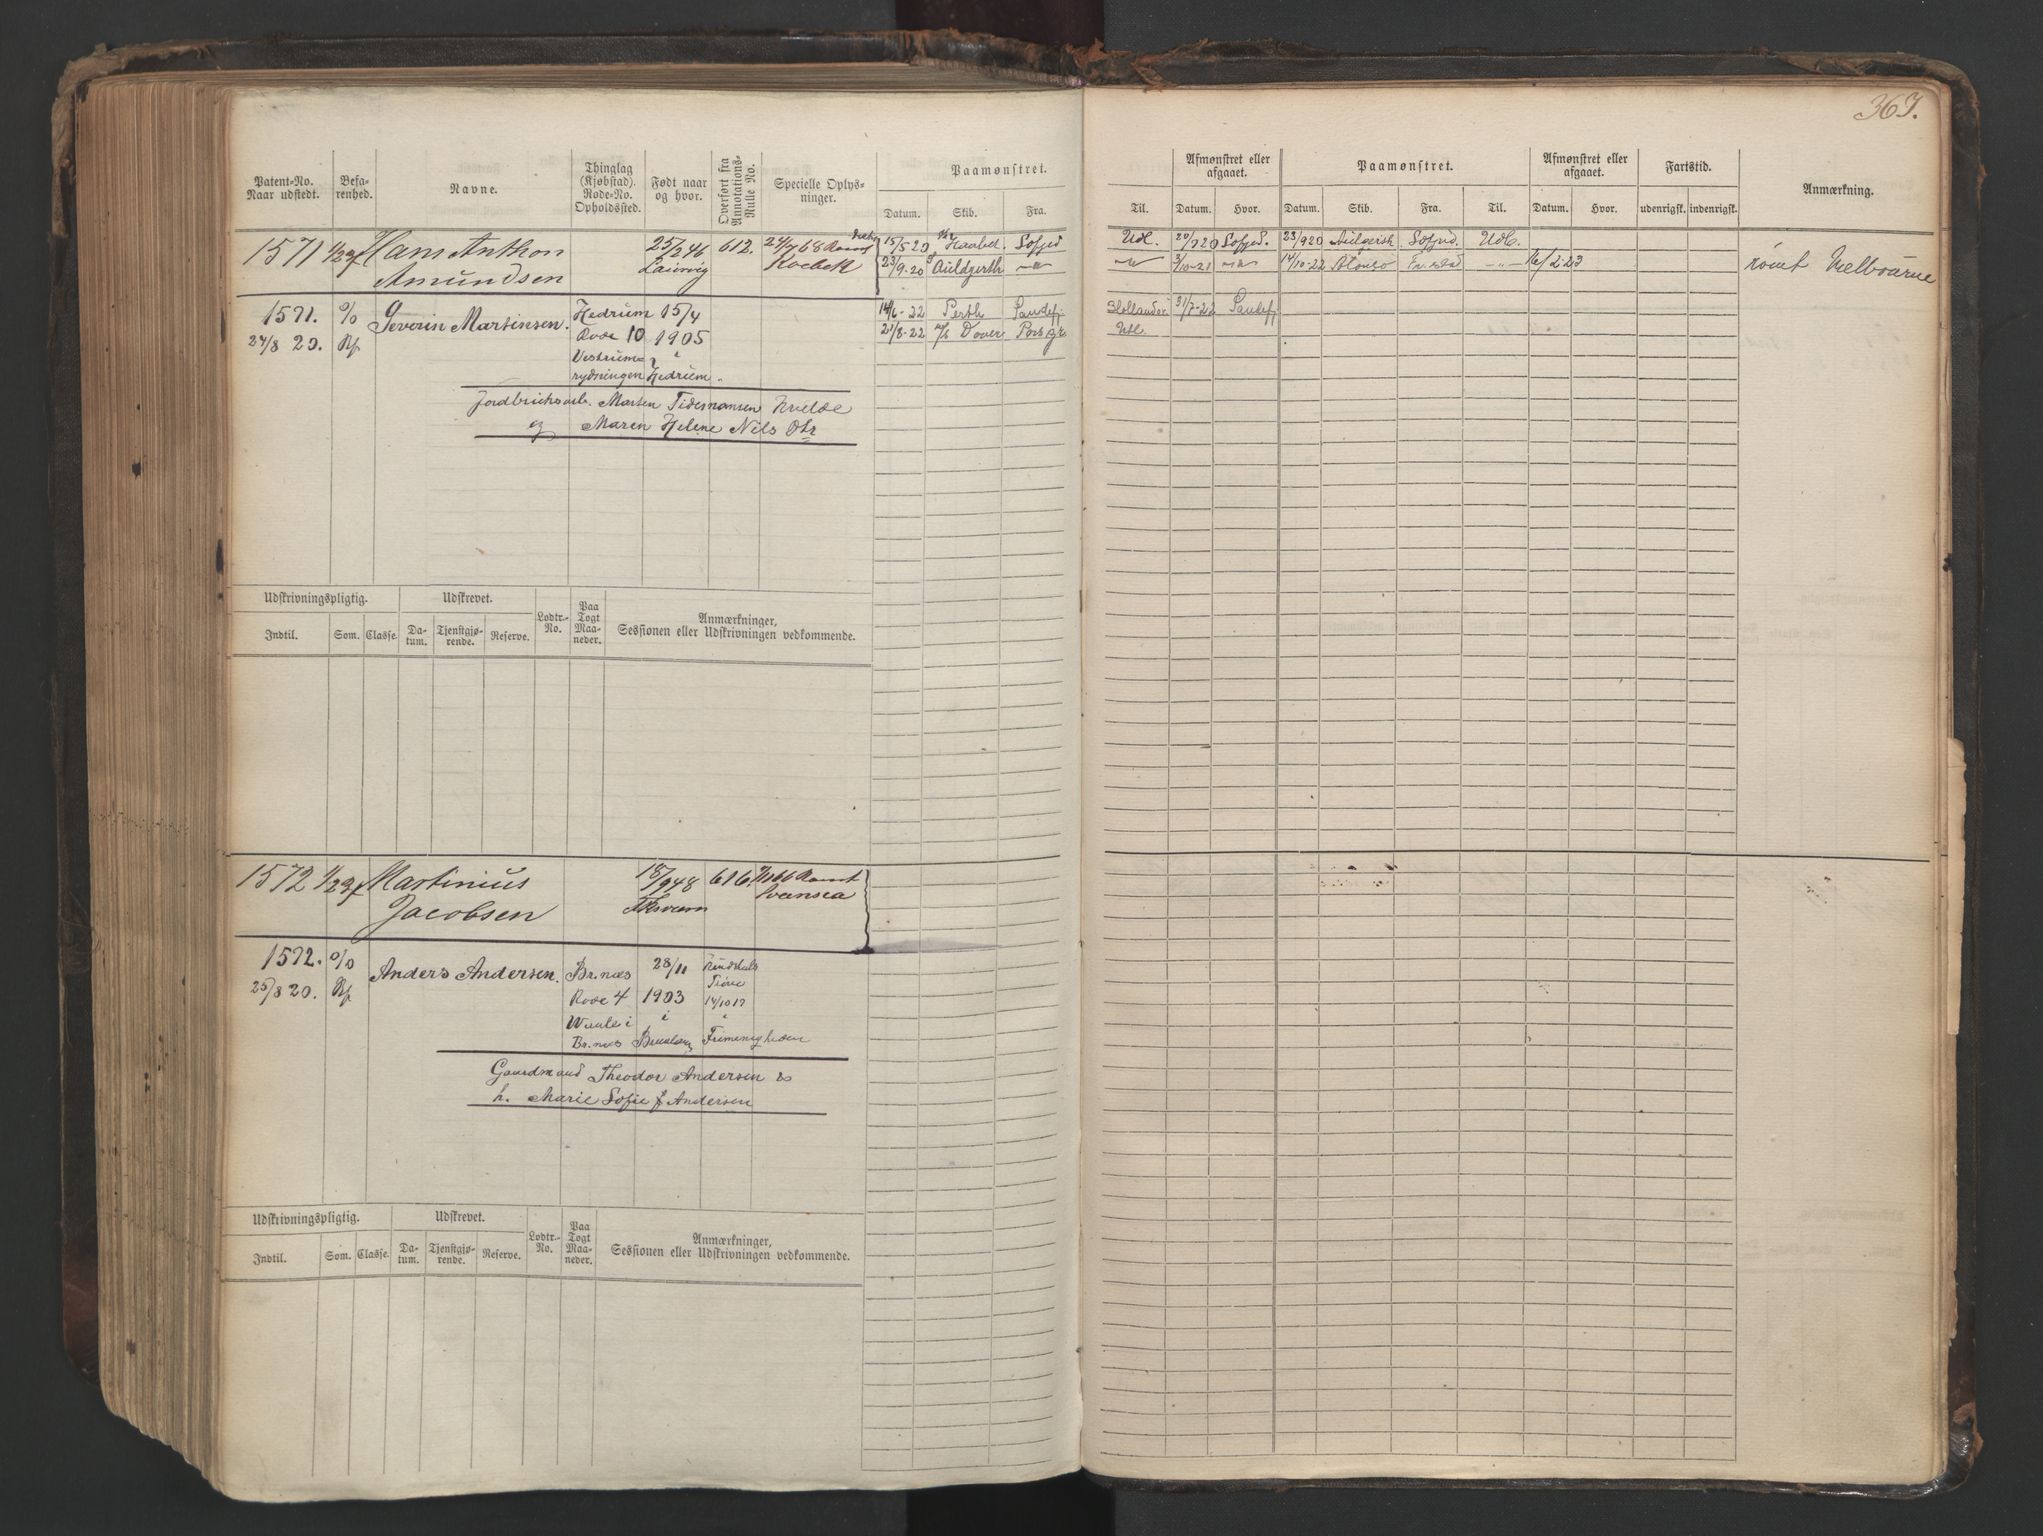 367.
Patent-No. Naar udstedt.
Befarenhed.
Navne.
Thinglag (Kjøbstad). Rode-No. Opholdssted.
Født naar og hvor.
Overført fra Annotations-Rulle No.
Specielle Oplysninger.
Paamønstret.
Datum. Skib. Fra.
Til.
Afmønstret eller afgaaet.
Datum. Hvor.
Paamønstret.
Datum. Skib. Fra. Til.
Afmønstret eller afgaaet.
Datum. Hvor.
Fartstid.
udenrigsk. indenrigsk.
Anmærkning.
1571 Hans Anthon 25/2 46 612. 24/7 68
Amundsen Laurvig Kvebek
15/5 20 Haabet Sofjrd Udl. 20/9 20 Sofjrd. 23/9 20 Sofjrd. Udl.
23/9-20 Auldgirth —"— —"— 3/10-21 —"— 14/10-22 —"— 16/2-23 rømt Melbourne
1571. Severin Martinsen. Hedrum 15/4
24/8 20. Rode 10 1905
Vestrum- i
rydningen Hedrum.
14/6-22 Perth Sandefj. 31/7-22 Sandefj
21/8-22 Dover Porsgr Udl
Jordbrugsarb. Marten Tidemansen Kvelde
og Maren Helene Nils Dtr
Udskrivningspligtig. Udskrevet. Lodtr.-No. Paa Togt Maaneder. Anmærkninger, Sessionen eller Udskrivningen vedkommende.
Indtil. Som. Classe. Datum. Tjenstgjørende. Reserve.
1572 Martinius 18/9 48 616. Rømt
Jacobsen Svansea
1572. Anders Andersen. Br.næs 28/11
25/8 20. Rode 4 1903 14/10 17
i
Br.næs
Gaardmand Theodor Andersen &
h. Marie Sofie f Andersen
Udskrivningspligtig. Udskrevet. Lodtr.-No. Paa Togt Maaneder. Anmærkninger, Sessionen eller Udskrivningen vedkommende.
Indtil. Som. Classe. Datum. Tjenstgjørende. Reserve.